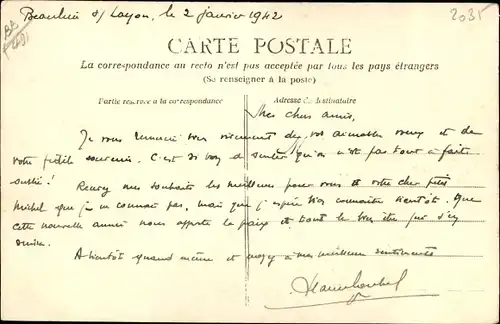 Beaulieu s/ Layon, le 2 janvier 1942
2035
CARTE POSTALE
La correspondance au recto n'est pas acceptée par tous les pays étrangers
(Se renseigner à la poste)
Partie réservée à la correspondance
Adresse du destinataire
Mes chers amis,
Je vous remercie bien vivement de vos aimables voeux et de
votre fidèle souvenir. C'est si bon de sentir qu'on n'est pas tout à fait
oublié ! Recevez mes souhaits les meilleurs pour vous et votre cher petit
Michel que je ne connais pas, mais que j'espère bien connaître bientôt. Que
cette nouvelle année nous apporte la paix et tout le bien être qui s'en
A bientôt quand même et croyez à mes meilleurs sentiments